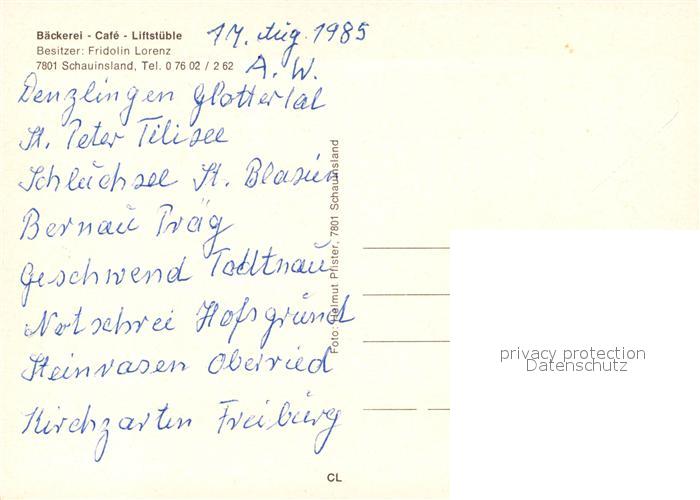 Bäckerei - Café - Liftstüble
Besitzer: Fridolin Lorenz
7801 Schauinsland, Tel. 0 76 02 / 2 62
17. Aug. 1985
A. W.
Denzlingen Glottertal
St. Peter Titisee
Schluchsee St. Blasien
Bernau Präg
Geschwend Todtnau
Notschrei Hofsgrund
Steinwasen Oberried
Kirchzarten Freiburg
Foto: Helmut Pfister, 7801 Schauinsland
CL
privacy protection
Datenschutz